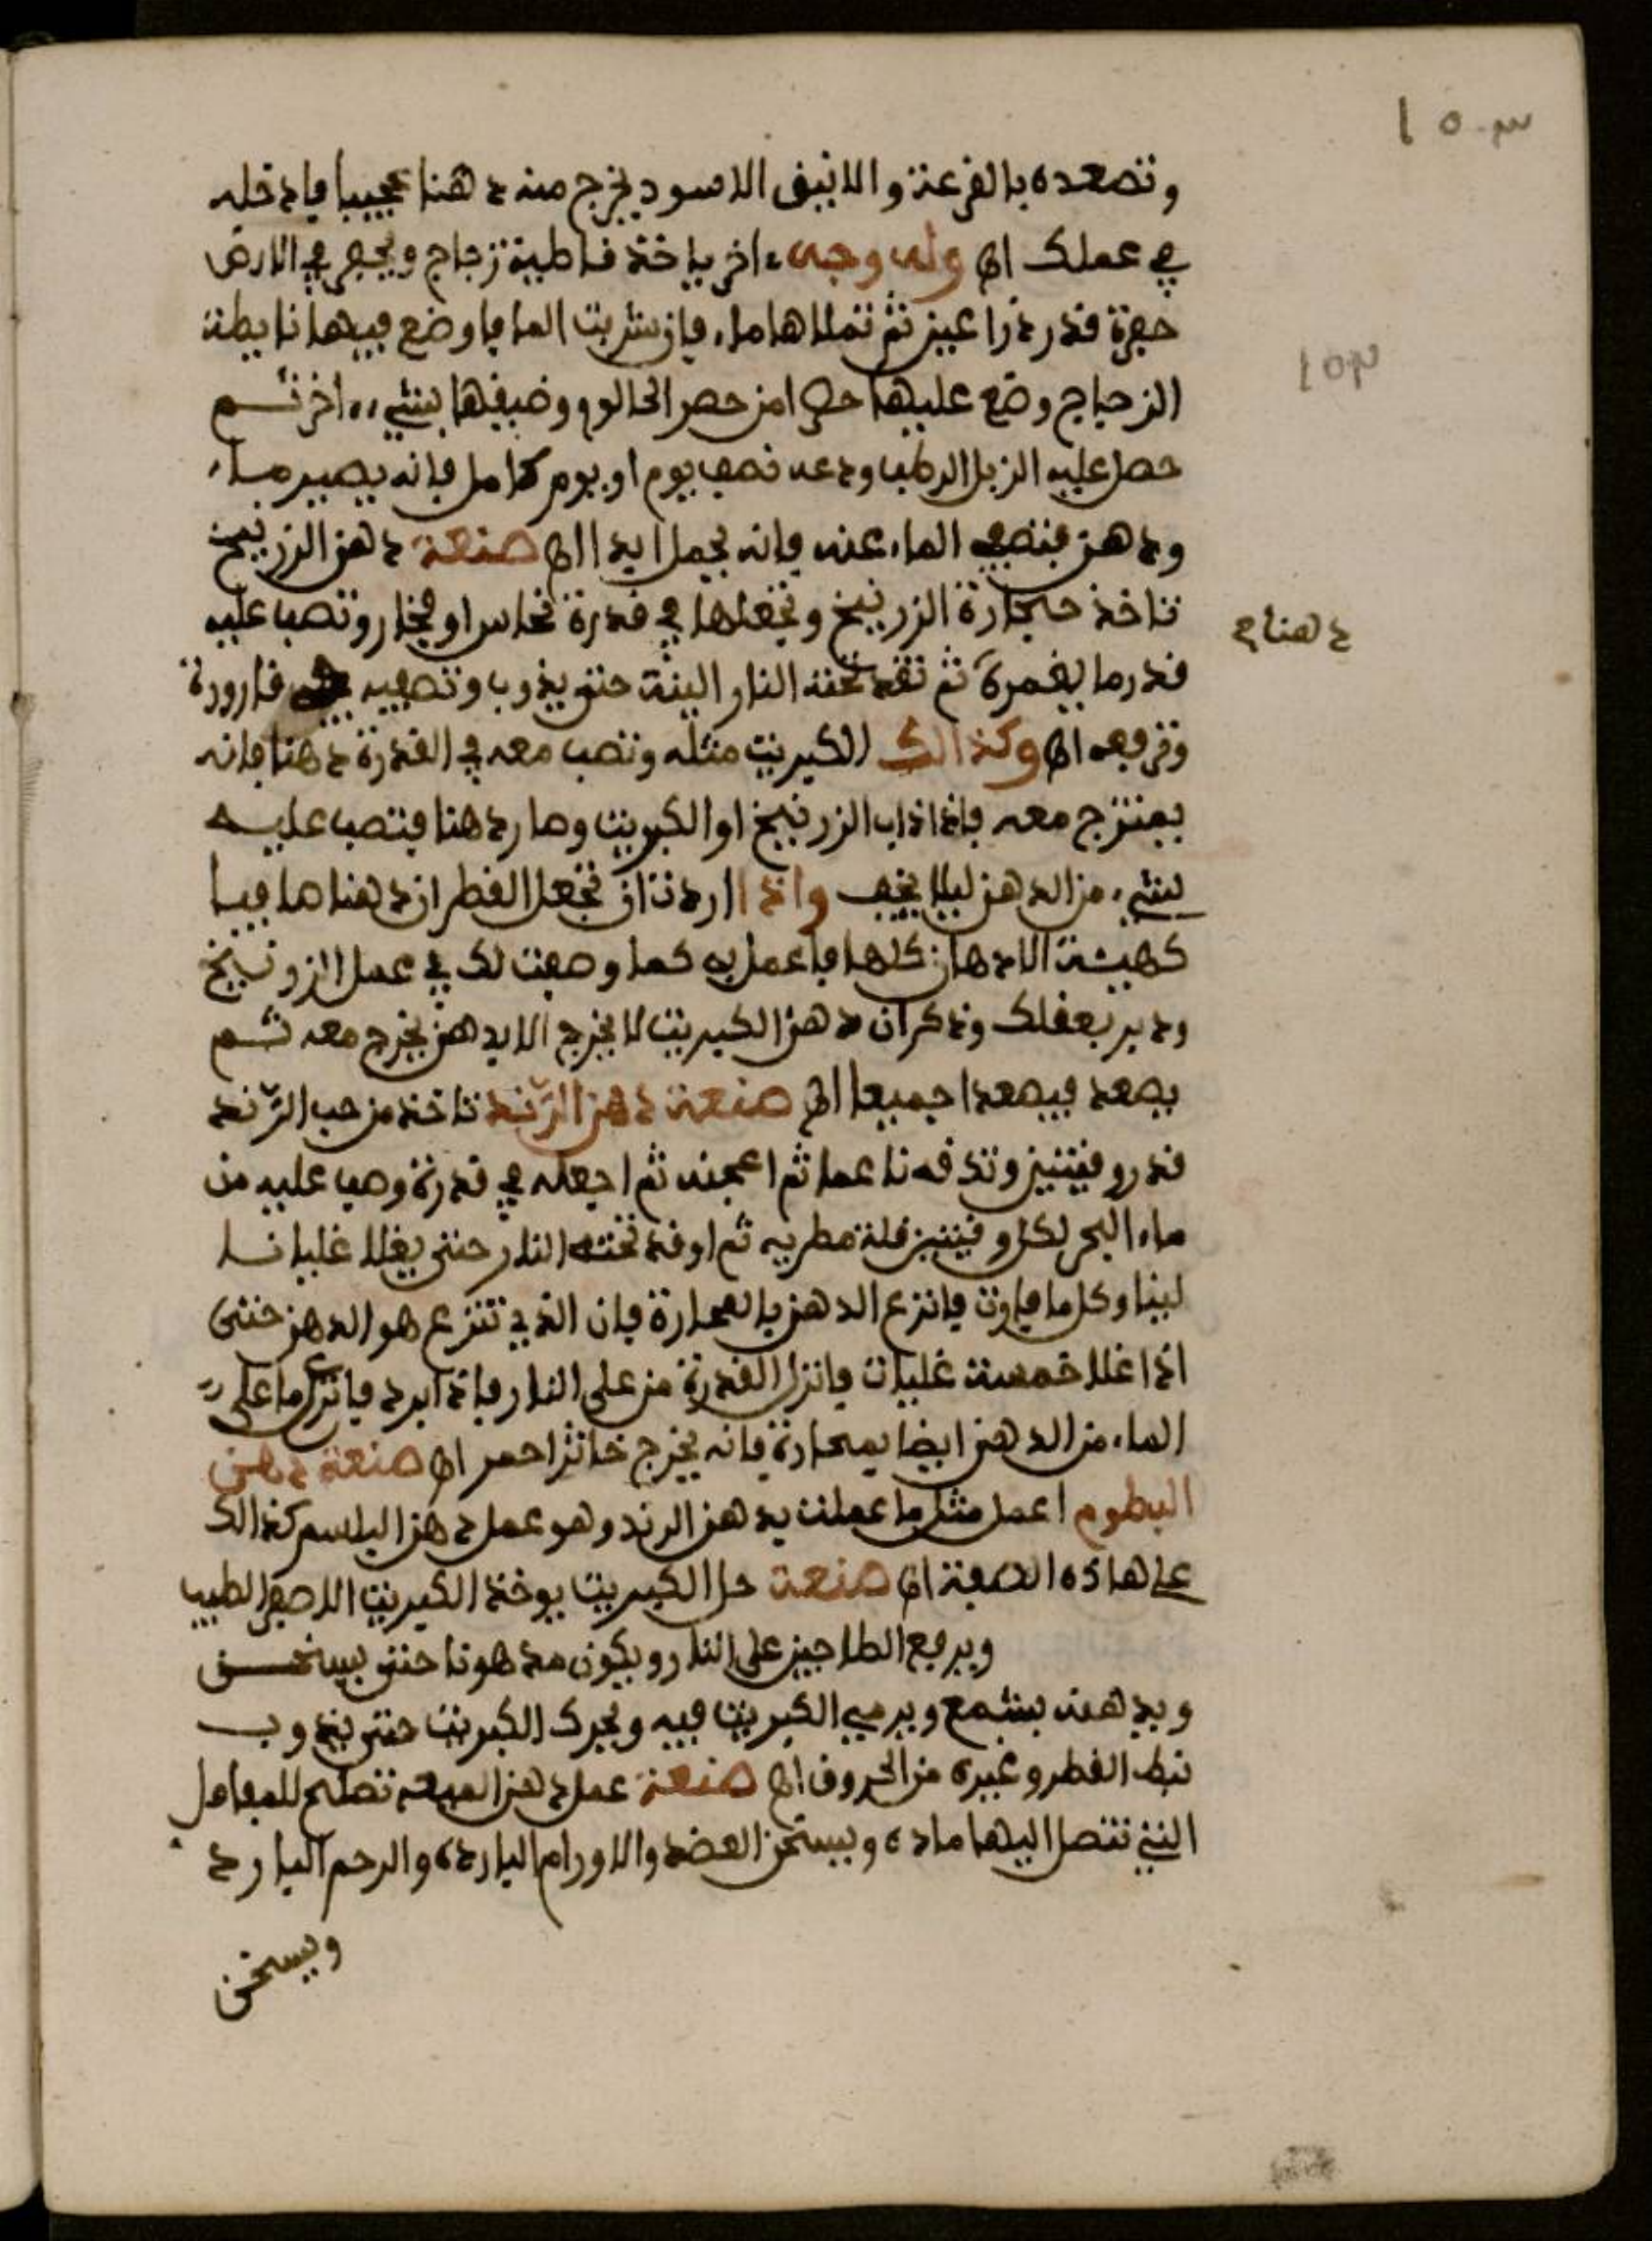 ١٥٣
١٥٣
وتصعده بالقرعة والانبيق الاسود يخرج منه دهنا عجيبا فادخله
في عملك اﻫ وله وجه ءاخر ياخذ قاطية زجاج ويحفر في الارض
حفرة قدر ذراعين ثم تملاها ماء فان شربت الما فاوضع فيها نابطة
الزجاج وضع عليها من حصر الحالوم وضيقها بشيء ءاخر ثم
حصل عليه الزبل الرطب ودعه نصف يوم او يوم كامل فانه يصير ماء
ودهن فتصفي الماء عنه فانه يحمل ابدا اﻫ صنعة دهن الزرنيخ
تاخذ حجارة الزرنيخ وتجعلها في قدرة نحاس او فخار وتصب عليه
دهنا
قدر ما يغمرة ثم تقد تحته النار الينة حتى يذوب وتصفيه قارورة
وترفعه اﻫ وكذالك الكبريت مثله وتصب معه في القدرة دهنا فانه
يمتزج معه فاذا ذاب الزرنيخ او الكبريت وصار دهنا فتصب عليه
شيء من الدهن ليلا يخف واذا اردت ان تجعل القطران دهنا صافيا
كهيئة الادهان كلها فاعمل به كما وصفت لك في عمل الزرنيخ
ودبر بعقلك وذكر ان دهن الكبريت لا يخرج الا بدهن يخرج معه ثم
يصعد فيصعدا جميعا اﻫ صنعة دهن الرند تاخذ من حب الرند
قدر وقيتين وتدقه ناعما ثم اعجنه ثم اجعله في قدرة وصب عليه من
ماء البحر لكل وقيتين قلة مطريه ثم اوقد تحته النار حتى يغلا غليانا
لينا وكل ما فاوت فانزع الدهن بالمحارة فان الذي تنزع هو الدهن حتى
اذا غلا خمسة غليات فانزل القدرة من على النار فاذا ابرد فانزع ما على
الماء من الدهن ايضا بمحارة فانه يخرج خاثرا احمر اﻫ صنعة دهن
البطوم اعمل مثل ما عملت بدهن الرند وهو عمل دهن البلسم كذالك
على هاذه الصفة اﻫ صنعة حل الكبريت يوخذ الكبريت الاصفر الطيب
ويرفع الطاجين على النار ويكون مدهونا حتى يسخن
ويدهنه بشمع ويرمي الكبريت فيه ويحرك الكبريت حتى يذوب
القطر وغيره من الحروف اﻫ صنعة عمل دهن الميعة تصلح للمفاصل
التي تتصل اليها ماده ويسخن العضد والاورام الباردة والرحم البارد
ويسخن